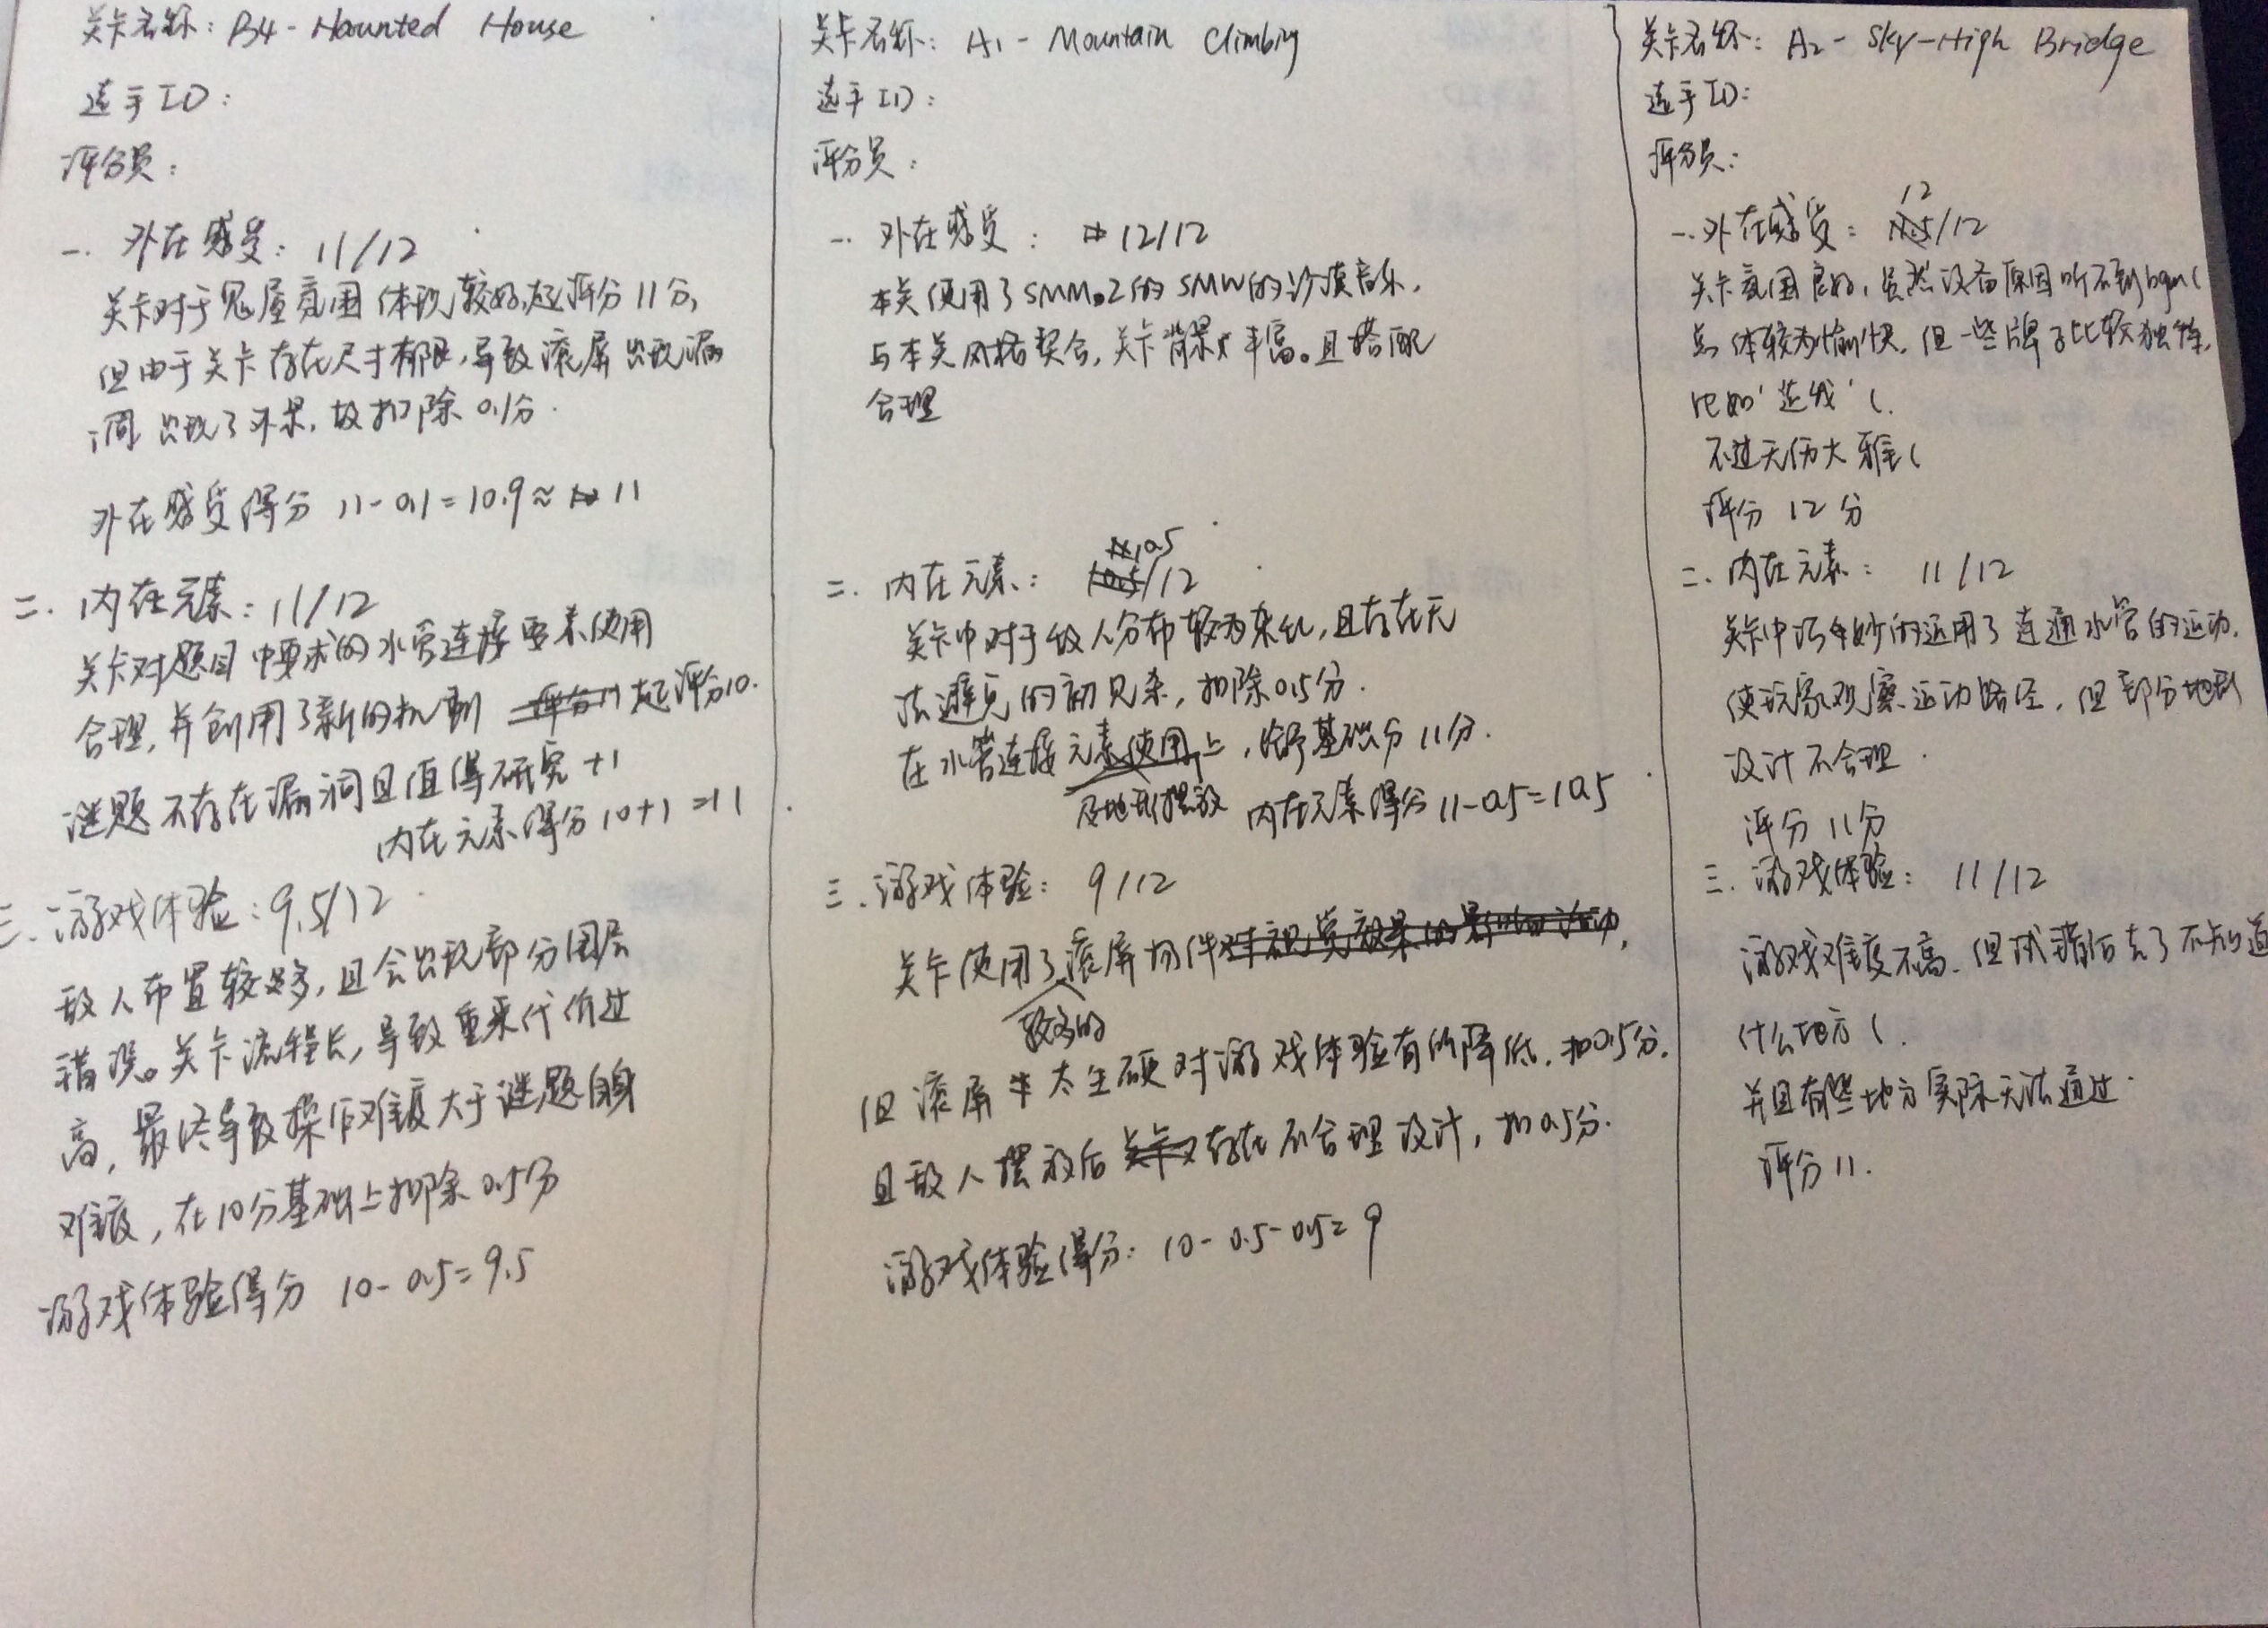 关卡名称：B4 - Haunted House
选手ID：
评分员：
一. 外在感受：11/12
关卡对于鬼屋氛围体现较好,起评分11分,
但由于关卡存在尺寸有限,导致滚屏出现漏
洞出现了坏果,故扣除0.1分.
外在感受得分 11-0.1=10.9≈11
二. 内在元素：11/12
关卡对题目中要求的水管连接要素使用
合理,并创用了新的机制 起评分10.
谜题不存在漏洞且值得研究+1
内在元素得分10+1=11
三. 游戏体验：9.5/12
敌人布置较多,且会出现部分图层
错误。关卡流程长,导致重来代价过
高,最终导致操作难度大于谜题自身
难度,在10分基础上扣除0.5分
游戏体验得分 10-0.5=9.5
关卡名称：A1 - Mountain Climbing
选手ID：
评分员：
一. 外在感受： 12/12
本关使用了SMM2的SMW的沙漠音乐,
与本关风格契合,关卡背景丰富。且搭配
合理
二. 内在元素： 10.5/12
关卡中对于敌人分布较为杂乱,且存在无
法避免的初见杀,扣除0.5分.
在水管连接元素使用及地形摆放上,给予基础分11分.
内在元素得分11-0.5=10.5
三. 游戏体验： 9/12
关卡使用了较多的滚屏物件,
但滚屏太生硬对游戏体验有所降低,扣0.5分.
且敌人摆放后存在不合理设计,扣0.5分.
游戏体验得分：10-0.5-0.5=9
关卡名称：A2 - Sky-High Bridge
选手ID：
评分员：
一. 外在感受： 12/12
关卡氛围良好,虽然设备原因听不到bgm(
总体较为愉快,但一些牌子比较独特,
比如'连线'(.
不过无伤大雅(
评分12分
二. 内在元素： 11/12
关卡中巧妙的运用了连通水管的运动,
使玩家观察运动路径,但部分地形
设计不合理.
评分11分
三. 游戏体验： 11/12
游戏难度不高,但试错后去了不知道
什么地方(.
并且有些地方实际无法通过.
评分11.